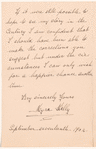 If it was still possible to
hope to see my story in the
Century I am confident that
I should have been able to
make the corrections you
suggest but under the cir-
cumstances I can only wait
for a happier chance another
time.
Very sincerely Yours
Myra Kelly
September seventeenth 1902